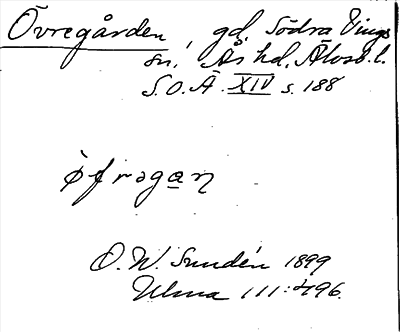 Övregården, gd, Södra Vings
sn, Ås hd, Älvsb. l.
S.O.Ä. XIV s. 188
ø̀frəga̲ɳ
O. W. Sundén 1899
Ulma 111:496.